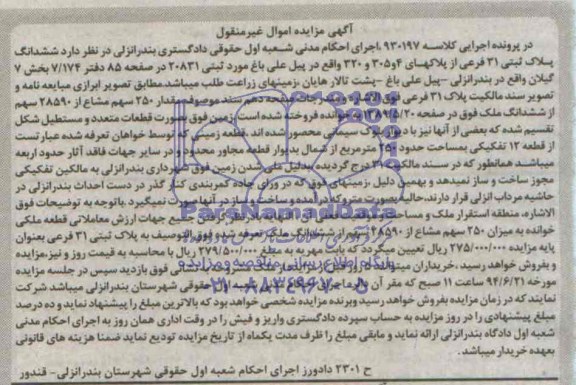 آگهی مزایده اموال غیرمنقول
در پرونده اجرایی کلاسه ۹۳۰۱۹۷ اجرای احکام مدنی شعبه اول حقوقی دادگستری بندرانزلی در نظر دارد ششدانگ
پلاک ثبتی ۳۱ فرعی از پلاکهای ۴و۳۰۵ و ۳۲۰ واقع در پیل علی باغ مورد ثبتی ۲۰۸۳۱ در صفحه ۸۵ دفتر ۷/۱۷۴ بخش ۷
گیلان واقع در بندرانزلی -پیل علی باغ -پشت تالار هایان ،زمینهای زراعت طلب میباشد.مطابق تصویر ابرازی مبایعه نامه و
تصویر سند مالکیت پلاک ۳۱ فرعی فوق الاشاره و مندرجات صفحه دهم سند موصوف مقدار ۲۵۰ سهم مشاع از ۲۸۵۹۰ سهم
از ششدانگ ملک فوق در صفحه ۱۳۸۹/۵/۲۰ به خوانده فروخته شده است.زمین فوق بصورت قطعات متعدد و مستطیل شکل
تقسیم شده که بعضی از آنها نیز با دیوار بلوک سیمانی محصور شده اند .قطعه زمینی که توسط خواهان تعرفه شده عبارتست
از قطعه ۱۲ تفکیکی بمساحت حدود ۲۵۰ مترمربع از شمال بدیوار قطعه مجاور محدود و در سایر جهات فاقد آثار حدود اربعه
میباشد همانطور که در سند مالکیت ۳۱ درج گردیده بدلیل ملی شدن زمین فوق شهرداری بندرانزلی به مالکین تفکیکی
مجوز ساخت و ساز نمیدهد و بهمین دلیل ،زمینهای فوق که در ورای جاده کمربندی کنار گذر در دست احداث بندرانزلی در
حاشیه مرداب انزلی قرار دارند،حالیه بصورت متروکه درآمده و ساخت و ساز در آنها صورت نمیگیرد .باتوجه به توضیحات فوق
الاشاره، منطقه استقرار ملک و مساحت جمیع جهات ارزش معاملاتی قطعه ملکی
خوانده به میزان ۲۵۰ سهم مشاع از ۲۸۵۹۰ سهم از ششدانگ ملک تعرفه شده فوق التوصیف به پلاک ثبتی ۳۱ فرعی بعنوان
پایه مزایده ۲۷۵/۰۰۰/۰۰۰ ریال تعیین میگردد که بابت مهریه به مطلع ریال با محاسبه به قیمت روز و نیز،مزایده
و بفروش خواهد رسید .خریداران میتوانند فوق بازدید سپس در جلسه مزایده
مورخه ۹۴/۶/۳۱ ساعت ۱۱ صبح که مقر آن حقوقی شهرستان بندرانزلی میباشد شرکت
نمایند که در زمان مزایده بفروش خواهد رسید وبرنده مزایده شخصی خواهد بود که بالاترین مبلغ را پیشنهاد نماید و ده درصد
مبلغ پیشنهادی را در روز مزایده به حساب سپرده دادگستری واریز و فیش را در وقت اداری همان روز به اجرای احکام مدنی
شعبه اول دادگاه بندرانزلی ارائه نماید و مابقی مبلغ را ظرف مدت یکماه از تاریخ مزایده تودیع نماید ضمنا هزینه های قانونی
بعهده خریدار میباشد.
ح ۲۳۰۱ دادورز اجرای احکام شعبه اول حقوقی شهرستان بندرانزلی- قندور
ParsNamadData
پایگاه اطلاع رسانی مناقصه و مزایده
۰۲۱-۸۸۳۴۹۶۷۰